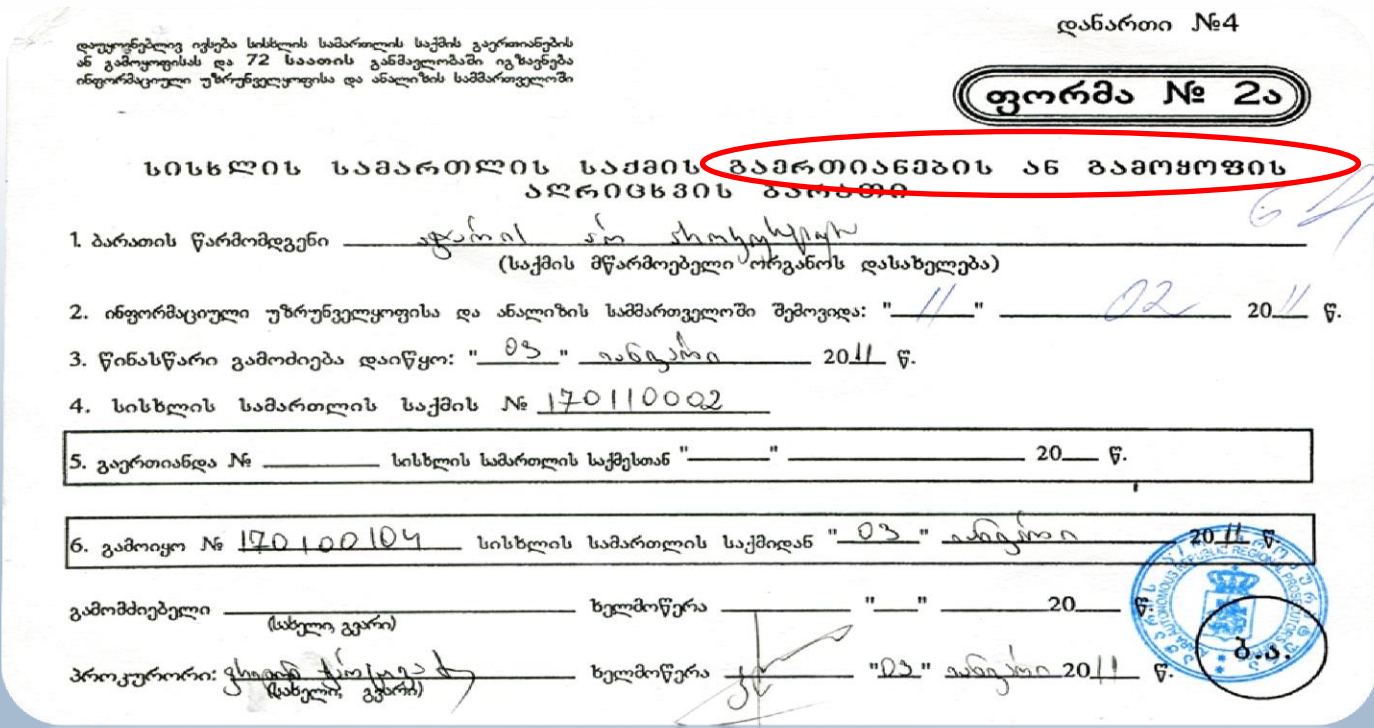 დანართი №4
დაუყოვნებლივ ივსება სისხლის სამართლის საქმის გაერთიანების
ან გამოყოფისას და 72 საათის განმავლობაში იგზავნება
ინფორმაციული უზრუნველყოფისა და ანალიზის სამმართველოში
ფორმა № 2ა
სისხლის სამართლის საქმის გაერთიანების ან გამოყოფის
აღრიცხვის ბარათი
1. ბარათის წარმომდგენი აჭარის არ პროკურატურა
(საქმის მწარმოებელი ორგანოს დასახელება)
2. ინფორმაციული უზრუნველყოფისა და ანალიზის სამმართველოში შემოვიდა: "11" 02 2011 წ.
3. წინასწარი გამოძიება დაიწყო: "03" იანვარი 2011 წ.
4. სისხლის სამართლის საქმის № 170110002
5. გაერთიანდა № ______ სისხლის სამართლის საქმესთან "____" ______ 20__ წ.
6. გამოიყო № 170100104 სისხლის სამართლის საქმიდან "03" იანვარი 2011 წ.
გამომძიებელი ______ ხელმოწერა ______ "__" ______ 20__ წ.
(სახელი, გვარი)
პროკურორი: ხელმოწერა "03" იანვარი 2011 წ.
(სახელი, გვარი)
ბ.ა.